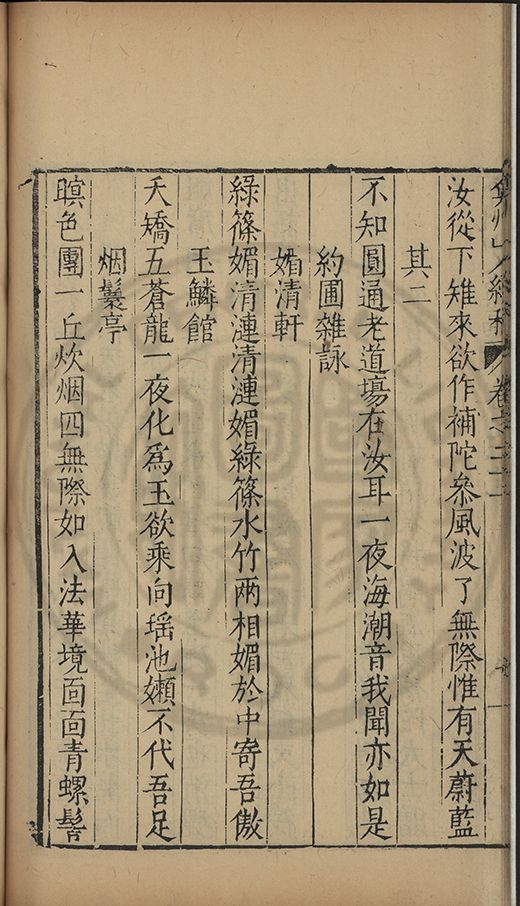 弇州山人續稿 卷之二十二
汝從下雉來欲作補陀叅風波了無際惟有天蔚藍
其二
不知圓通老道場在汝耳一夜海潮音我聞亦如是
約圃雜詠
媚清軒
綠篠媚清漣清漣媚綠篠水竹兩相媚於中寄吾傲
玉鱗館
夭矯五蒼龍一夜化爲玉欲乘向瑶池嬾不代吾足
烟鬟亭
暝色團一丘炊烟四無際如入法華境面面青螺髻